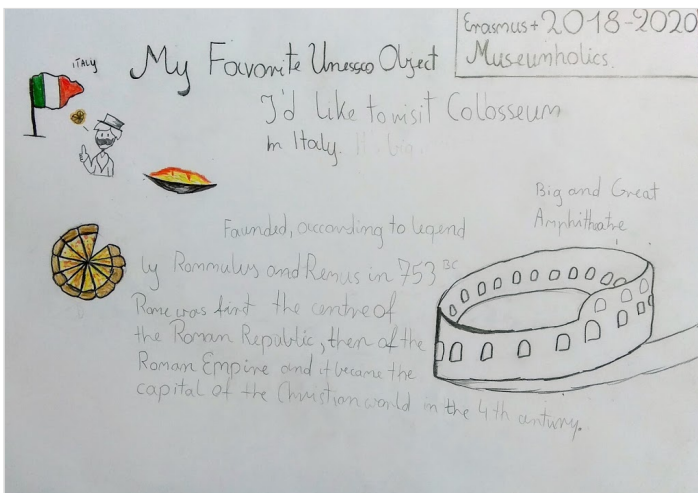 Erasmus+ 2018-2020
Museumholics.
ITALY
My Favorite Unessco Object
I'd Like to visit Colosseum
in Italy.
Big and Great
Amphithatre
Faunded, according to legend
by Rommulus and Remus in 753 BC
Rome was first the centre of
the Roman Republic, then of the
Roman Empire and it became the
capital of the Christian world in the 4th antury.